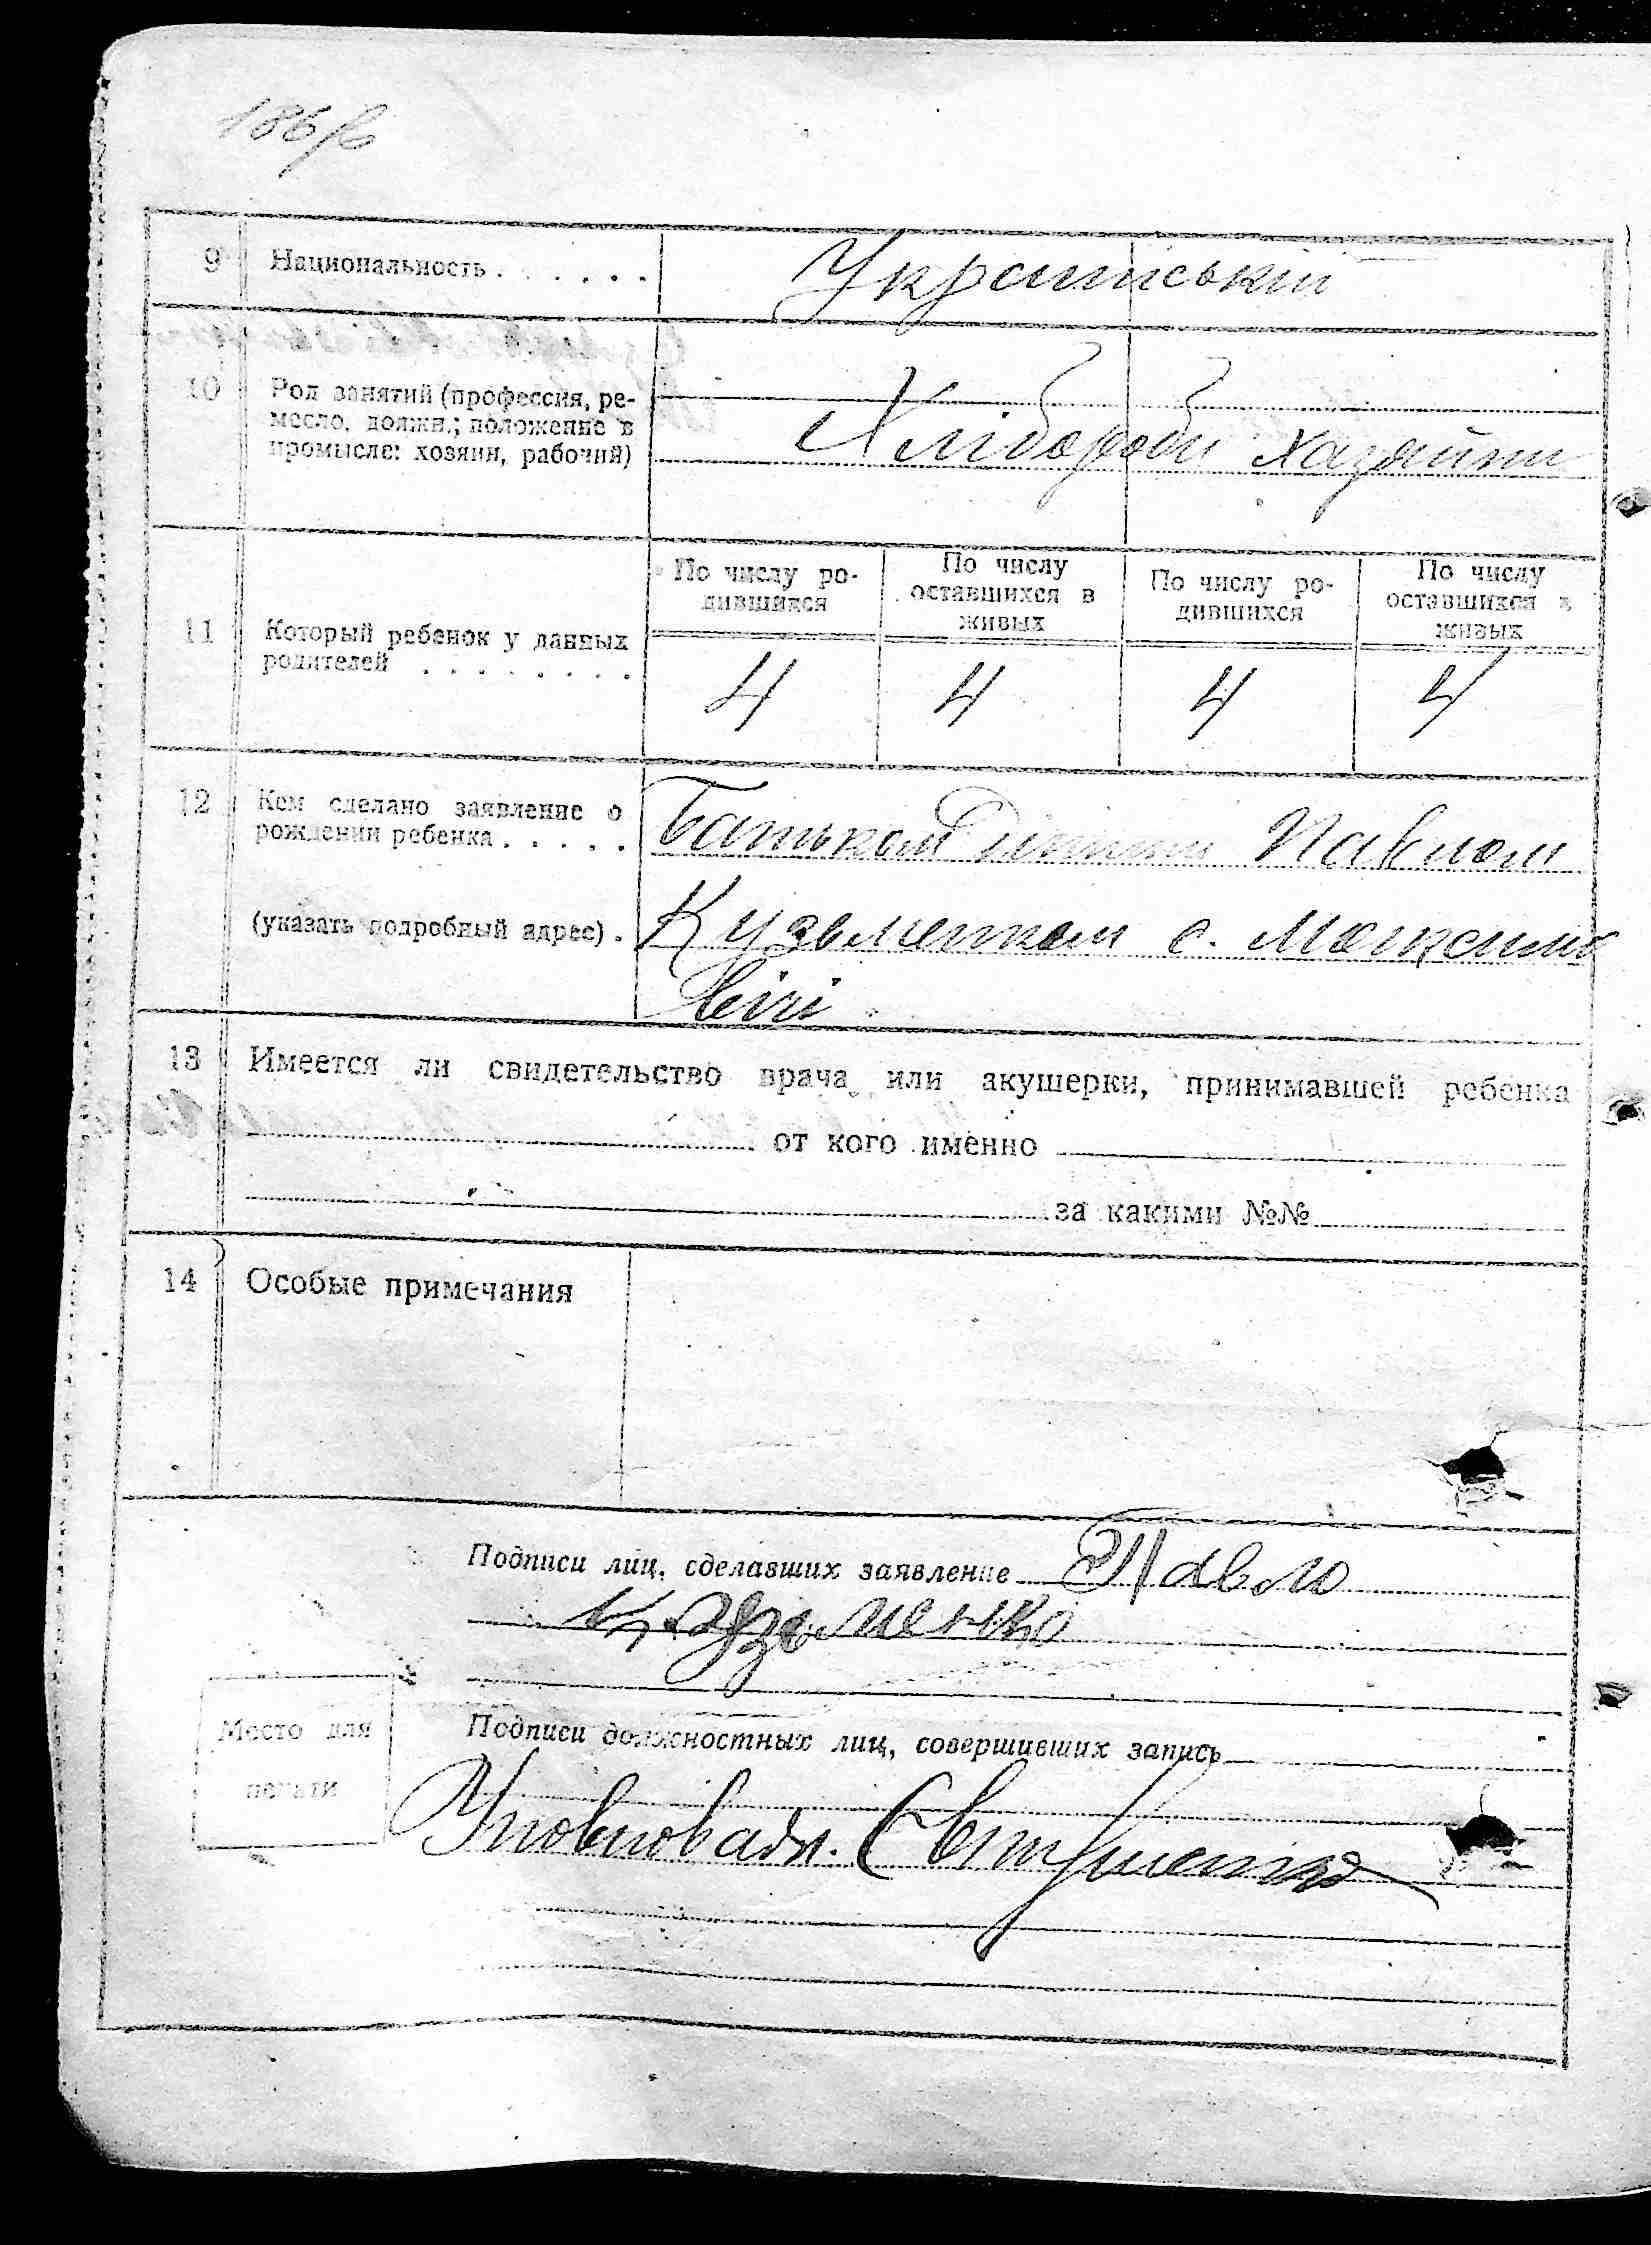 186/6
9 Национальность . . . . . . Український
10 Род занятий (профессия, ре-
месло, должн.; положение в
промысле: хозяин, рабочий)
Хлібороби хазяйни
11 Который ребенок у данных
родителей . . . . . . . .
По числу ро-
дившихся
По числу
оставшихся в
живых
По числу ро-
дившихся
По числу
оставшихся в
живых
4 4 4 4
12 Кем сделано заявление о
рождении ребенка . . . . .
(указать подробный адрес) .
Батьком Павлом
Кузьменком с.
13 Имеется ли свидетельство врача или акушерки, принимавшей ребенка
от кого именно
за какими №№
14 Особые примечания
Подписи лиц, сделавших заявление Павло
Кузьменко
Место для
печати
Подписи должностных лиц, совершивших запись